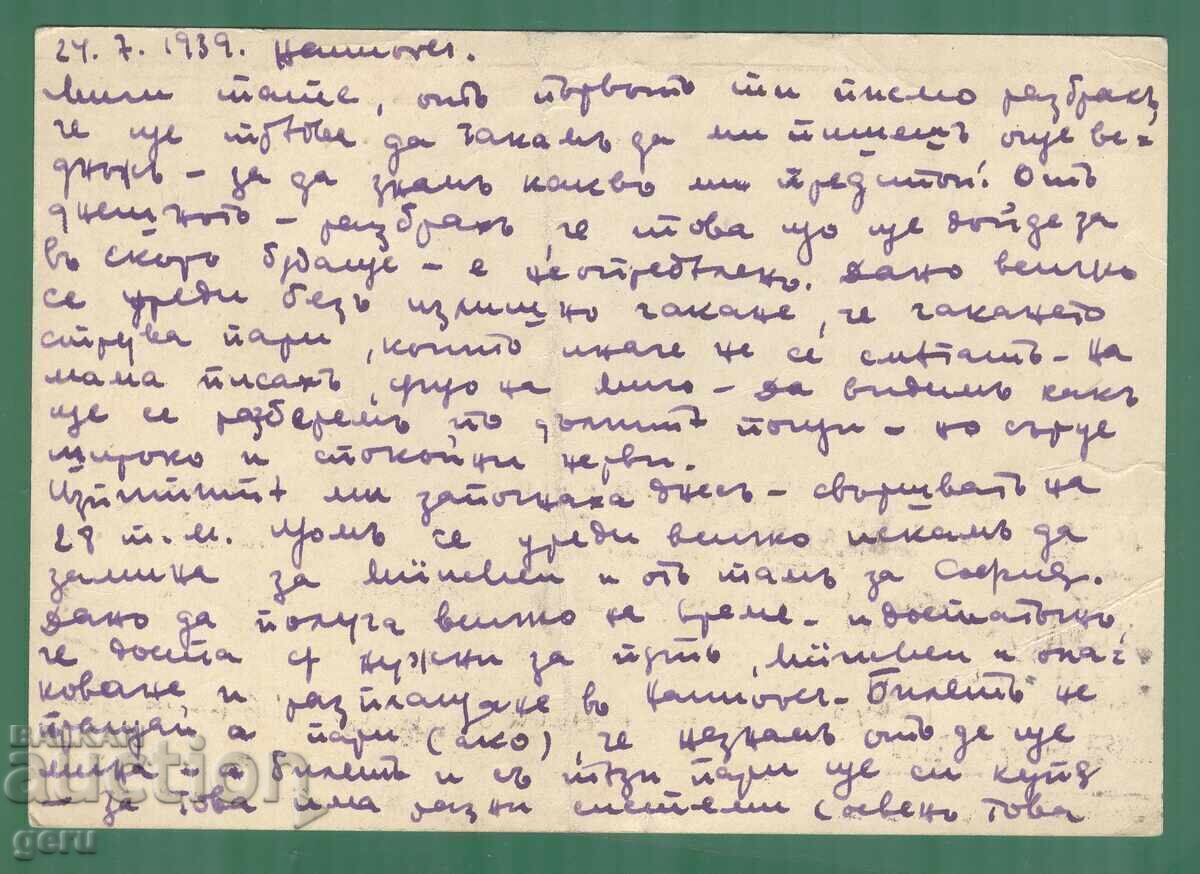 24. 7. 1939. Hannover.
Мили тате, отъ първото ти писмо разбрахъ,
че ще трѣбва да чакамъ да ми пишешъ още ве-
днъжъ – за да знамъ какво ми предстои! Отъ
днешното – разбрахъ, че това що ще дойде за
въ скоро бѫдаще – е неопредѣлено. Дано всичко
се уреди безъ излишно чакане, че чакането
струва пари, които иначе не се смѣтатъ – На
мама писахъ, на – да видимъ какъ
ще се разберемъ по пощи – но сърце
широко и спокойни нерви.
Изпититѣ ми започнаха днесъ – свършватъ на
28 т.м. Щомъ се уреди всичко искамъ да
замина за München и отъ тамъ за София.
Дано да получа всичко на време – и достатъчно,
че доста сѫ нужни за пѫть, München и опа-
коване и разплащане въ Hannover – Билетъ не
пращай а пари (ако), че незнамъ отъ де ще
мина – а билетъ и съ тѣзи пари ще си купѭ
– за това има разни системи (освенъ това
БАЛКАН
auction
geru